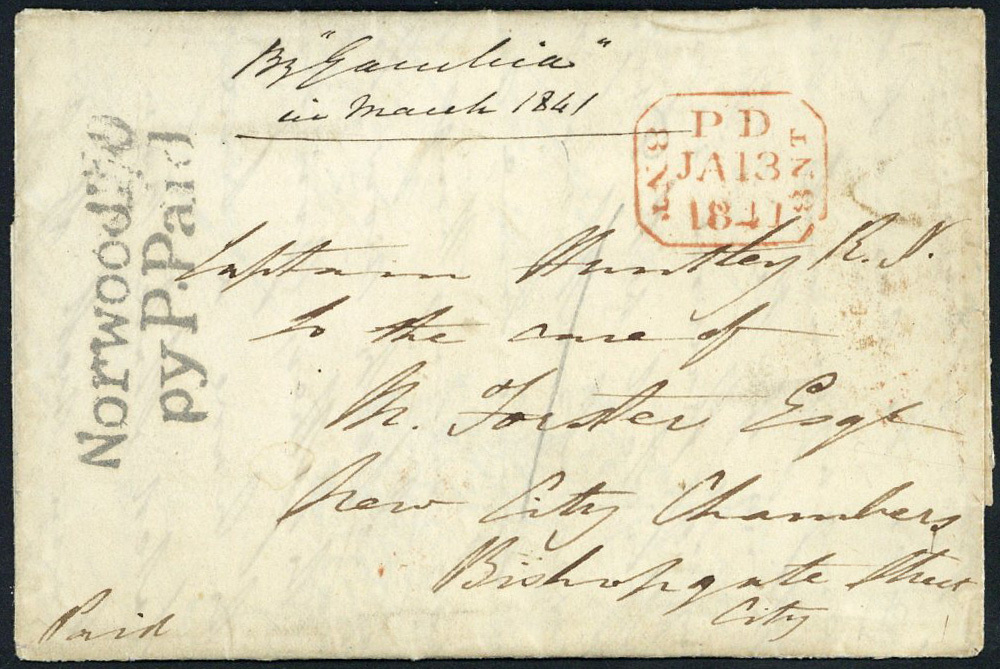 By "Gambia"
in March 1841
P D
JA 13
1841
8 NT
8 NT
Norwood EO
py P.Paid
Captain Huntley R.N.
to the care of
M. Forster Esqe
New City Chambers
Bishopsgate Street
City
Paid